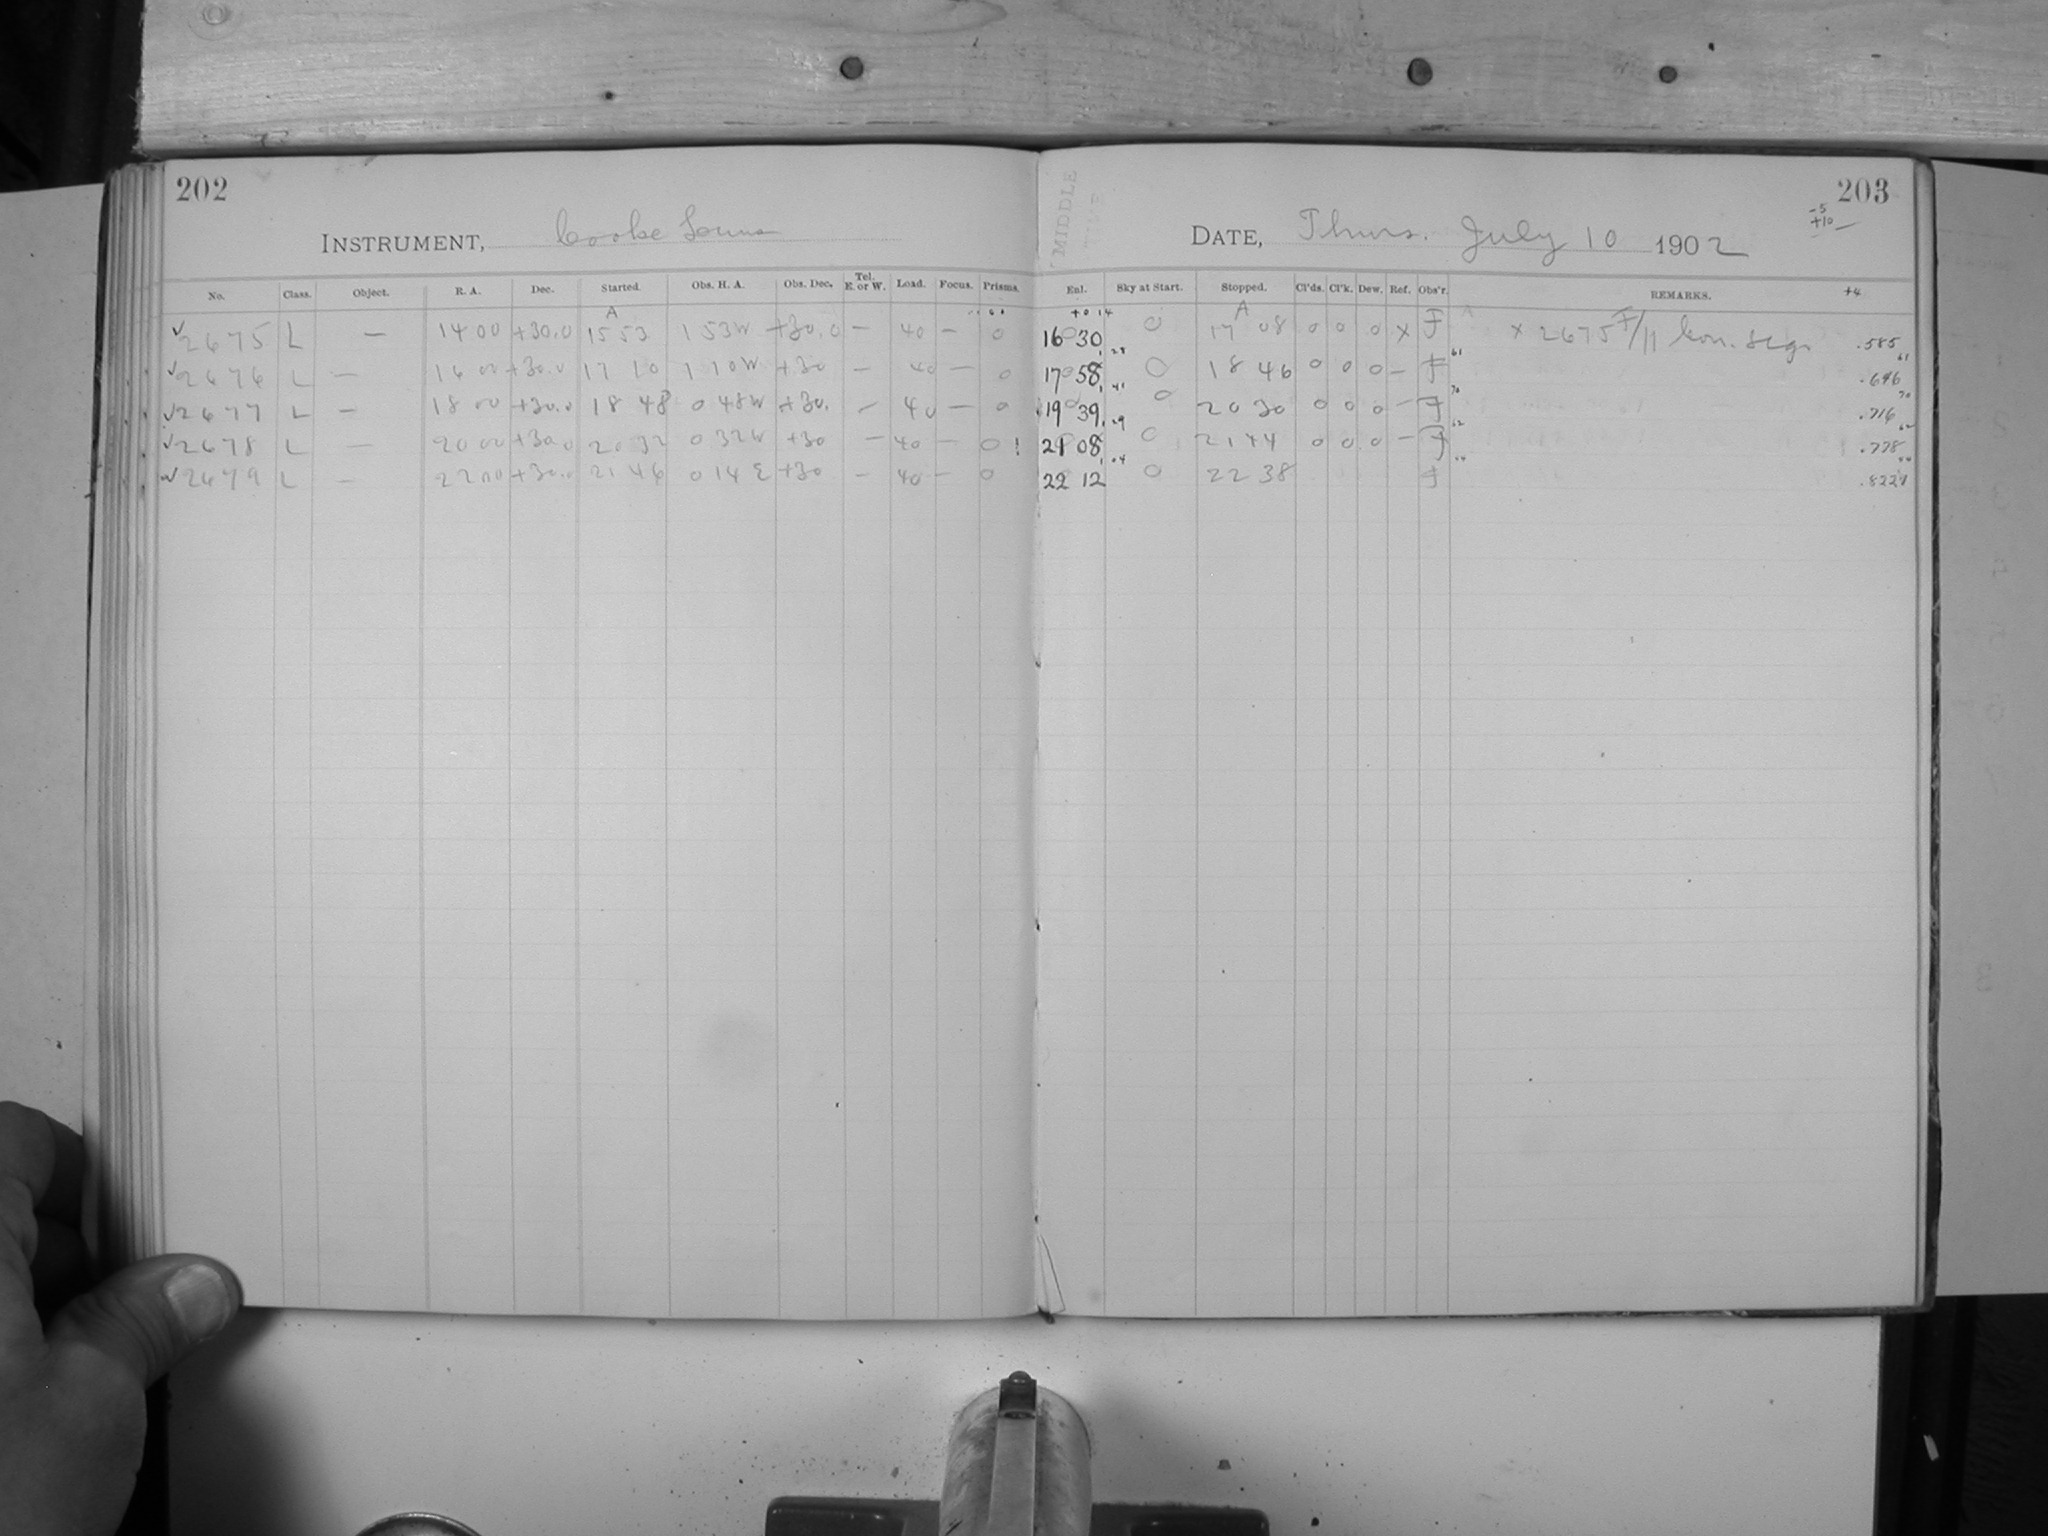 202
INSTRUMENT, Cooke Lens
No. Class. Object. R. A. Dec. Started. Obs. H. A. Obs. Dec. Tel. E. or W. Load. Focus. Prisms.
A
√2675 L — 14 00 +30.0 15 53 1 53 W +30.0 — 40 — 0
√2676 L — 16 00 +30.0 17 10 1 10 W +30 — 40 — 0
√2677 L — 18 00 +30.0 18 48 0 48 W +30. — 40 — 0
√2678 L — 20 00 +30.0 20 32 0 32 W +30 — 40 — 0
√2679 L — 22 00 +30.0 21 46 0 14 E +30 — 40 — 0
203
MIDDLE
-5
+10
DATE, Thurs. July 10 1902
Enl. Sky at Start. Stopped. Cl'ds. Cl'k. Dew. Ref. Obs'r. REMARKS. +4
+0 14 A
16 30 0 17 08 0 0 0 x F x 2675 F/11 .585
17 58 0 18 46 0 0 0 — F .646
19 39 0 20 30 0 0 0 — F .716
21 08 0 21 44 0 0 0 — F .778
22 12 0 22 38 F .822